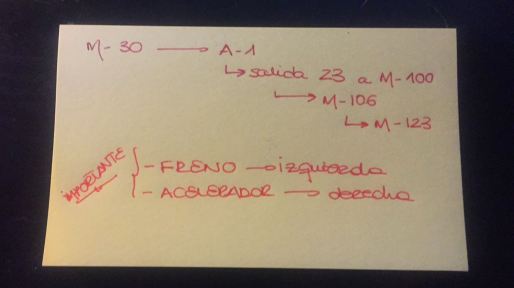 M-30 → A-1
↳ salida 23 a M-100
↳ M-106
↳ M-123
IMPORTANTE
- FRENO → izquierda
- ACELERADOR → derecha